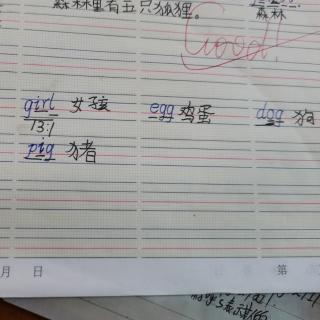 森林里有五只狐狸。
森林
Good!
girl 女孩 egg 鸡蛋 dog 狗
13:1
pig 猪
月 日
第